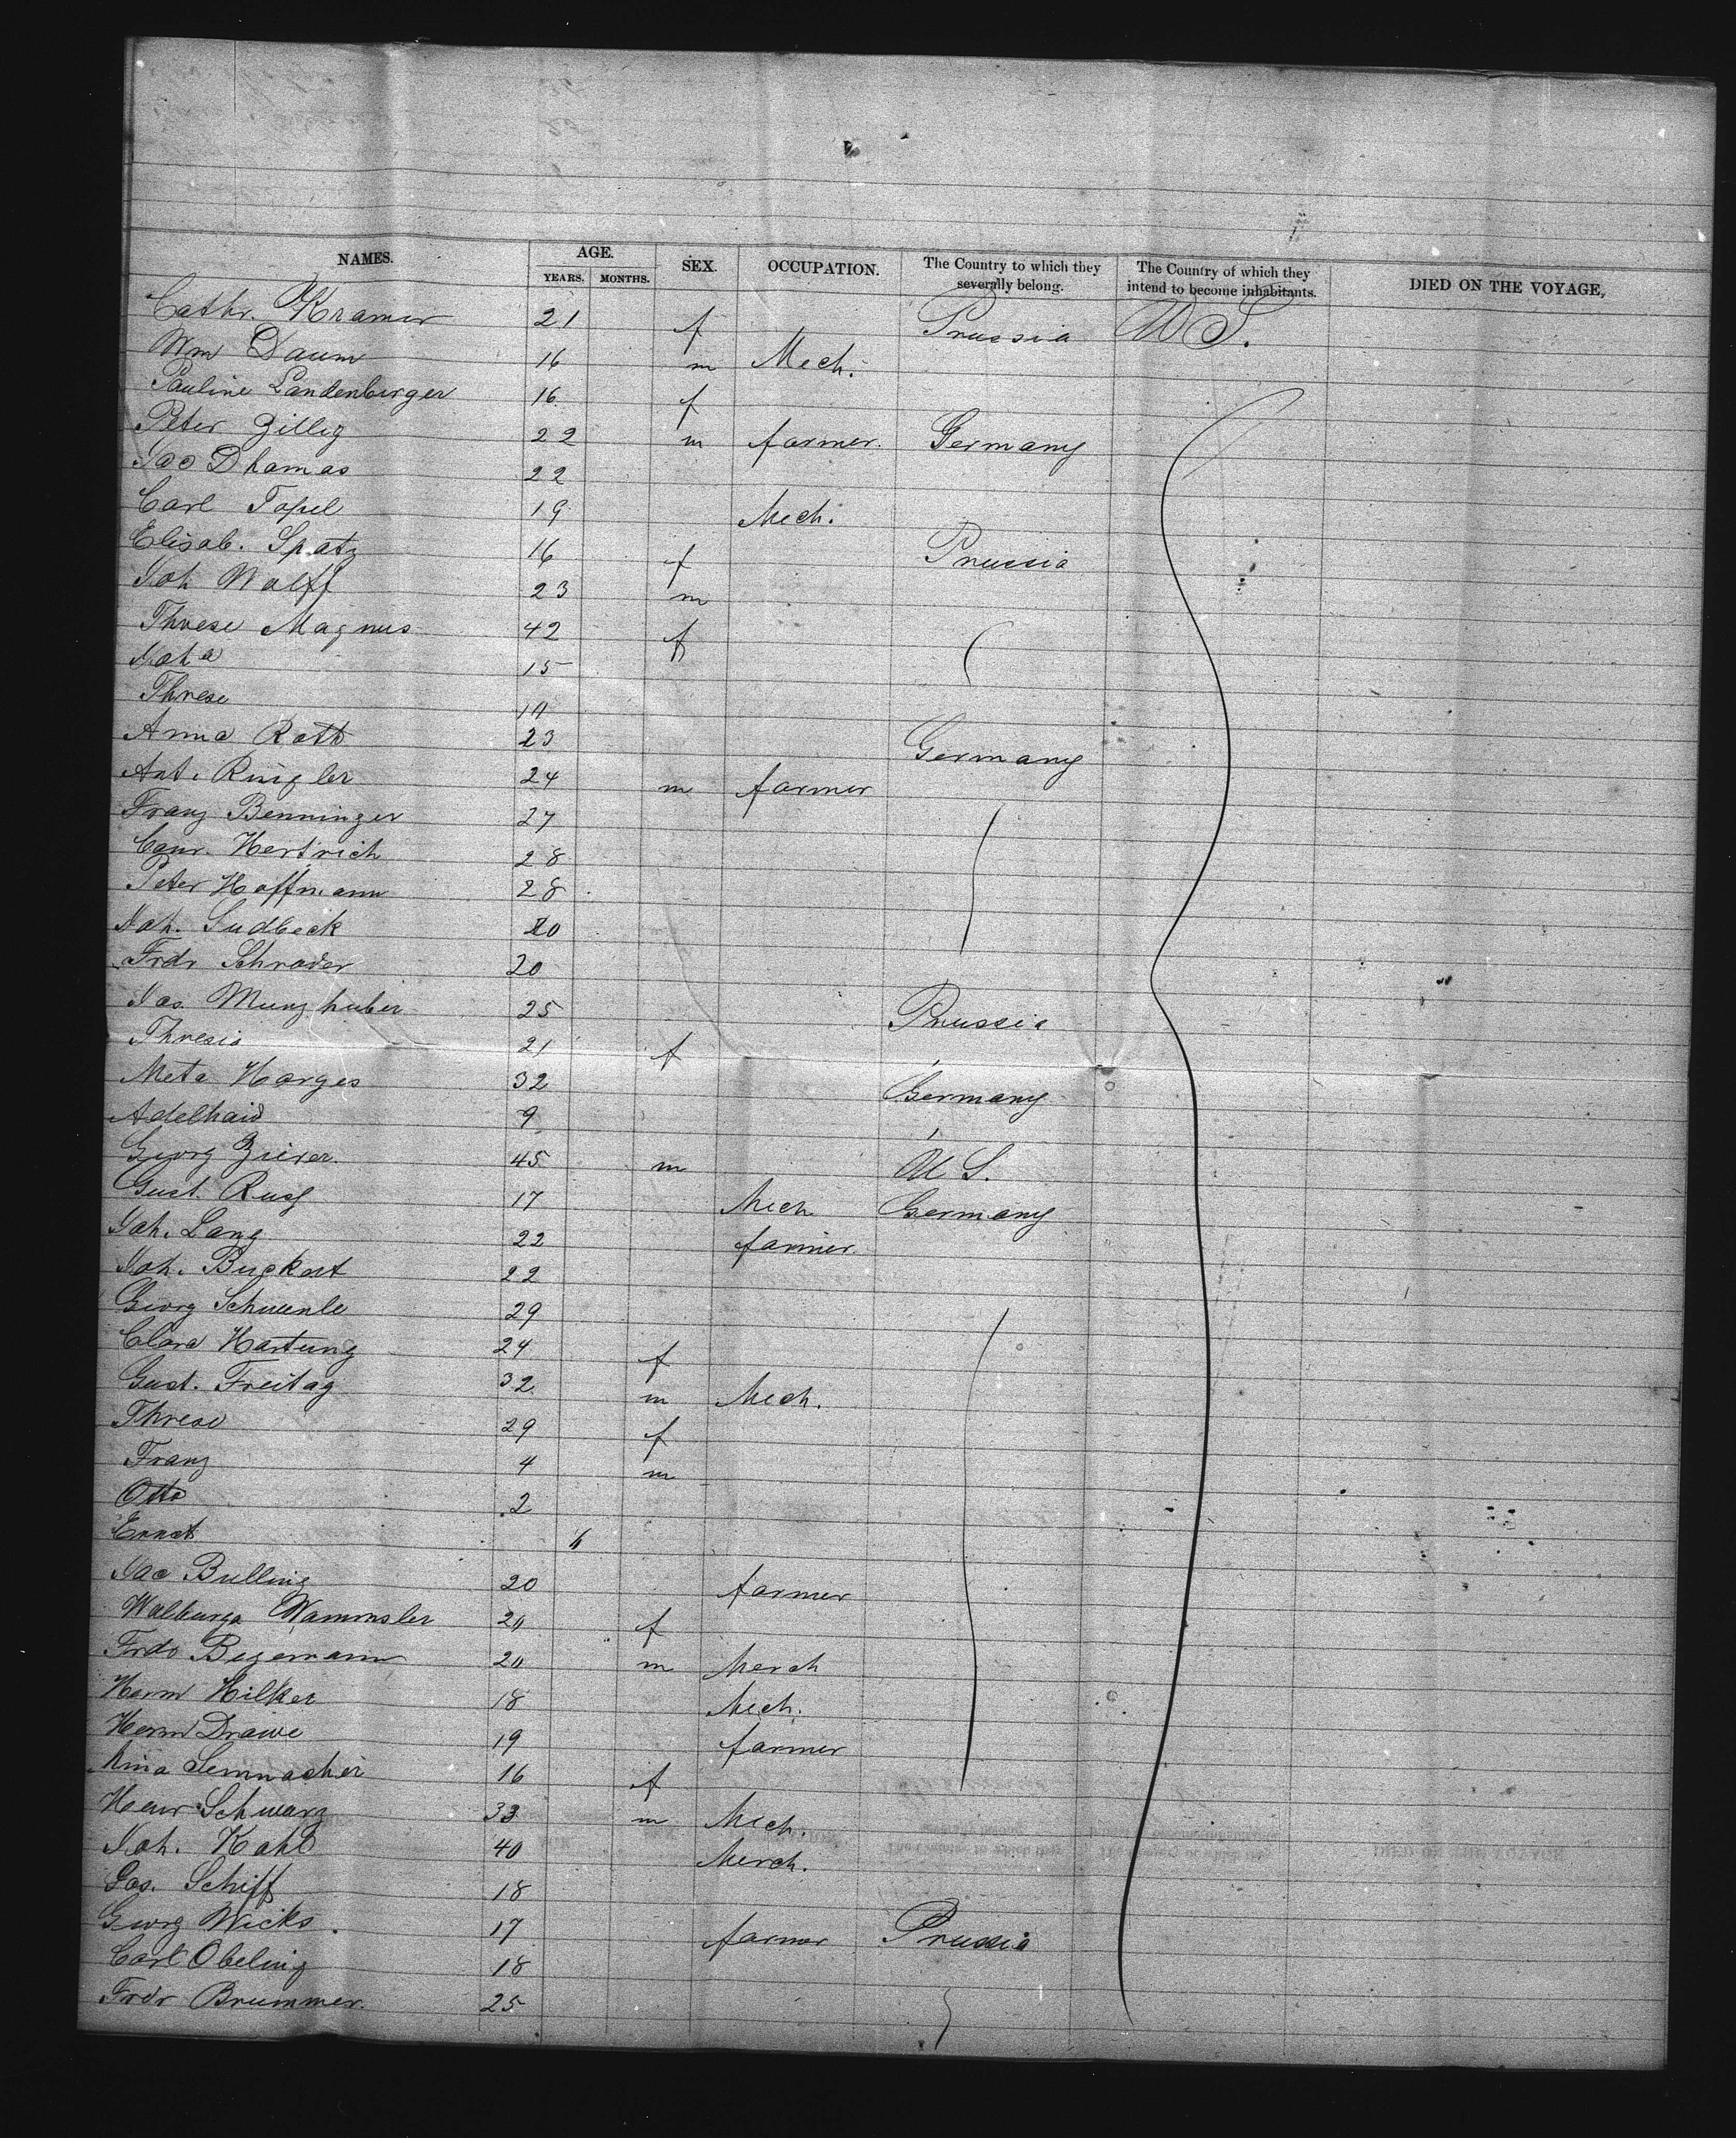 NAMES. AGE. SEX. OCCUPATION. The Country to which they severally belong. The Country of which they intend to become inhabitants. DIED ON THE VOYAGE,
YEARS. MONTHS.
Cathr. Kramer 21 f Prussia U S.
Wm Daum 16 m Mech.
Pauline Landenberger 16 f
Peter Zillig 22 m farmer. Germany
Jac Dhamas 22
Carl Topel 19 Mech.
Elisab. Spatz 16 f Prussia
Joh Wolff 23 m
Threse Magnus 42 f
Joha 15
Threse
Anna Roth 23 Germany
Ant. Ringler 24 m farmer
Franz Benninger 27
Conr. Hertrich 28
Peter Hoffmann 28
Joh. Sudbeck 20
Frdr Schroder 20
Jos. Munzhuber 25 Prussia
Thresia 21 f
Meta Harges 32 Germany
Adelhaid 9
Georg Zierer. 45 m U S.
Gust. Rusf 17 Mech Germany
Joh. Lang 22 farmer
Joh. Buckert 22
Georg Schwenle 29
Clara Hartung 24 f
Gust. Freitag 32 m Mech.
Threse 29 f
Franz 4 m
Otto 2
Ernst 6
Jac Bulling 20 farmer
Walburga Wammsler 20 f
Frdr Begemann 20 m Merch
Herm Hilker 18 Mech.
Herm Drawe 19 farmer
Mina Semmacher 16 f
Henr Schwarz 33 m Mech.
Joh. Kahl 40 Merch.
Jos. Schiff 18
Georg Wicks. 17 farmer Prussia
Carl Obeling 18
Frdr Brummer. 25